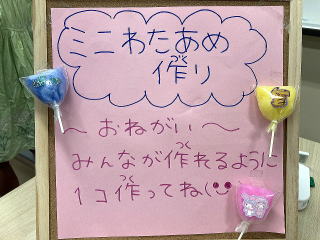 ミニわたあめ
作り
つく
～おねがい～
みんなが作れるように
つく
1コ作ってね
つく